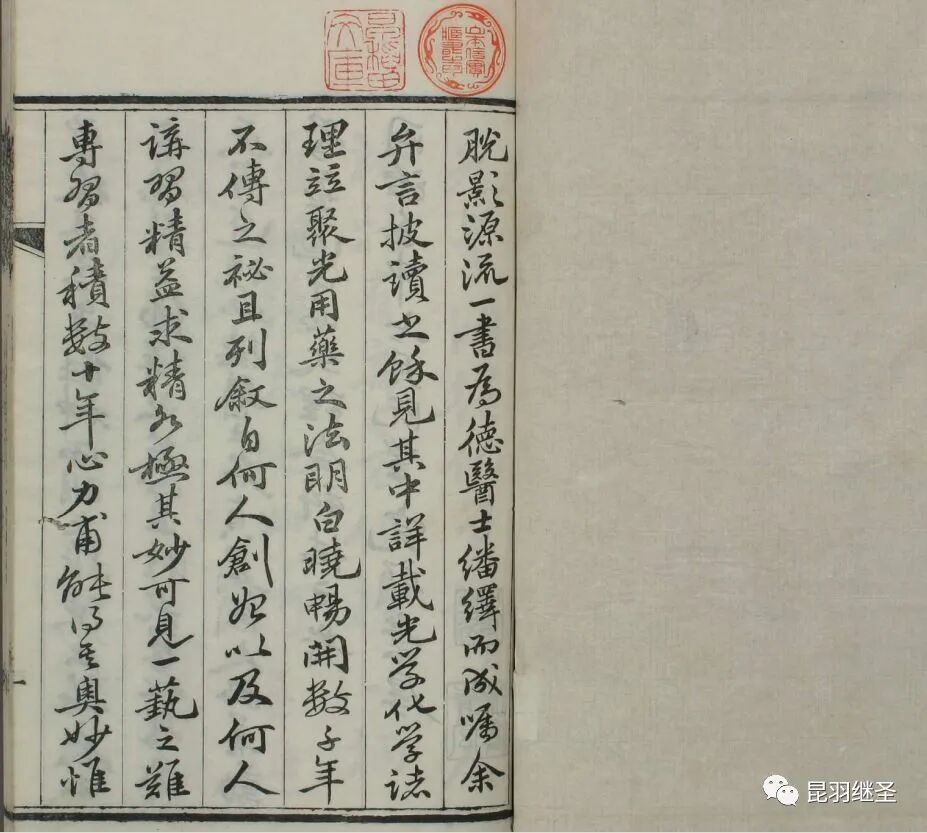 脫影源流一書為德醫士繙繹而成嘱余
弁言披讀之餘見其中詳載光学化学諸
理竝聚光用藥之法明白曉暢開數千年
不傳之祕且列敘自何人創始以及何人
講習精益求精各極其妙可見一藝之難
專習者積數十年心力甫能得其奧妙惟
昆羽继圣